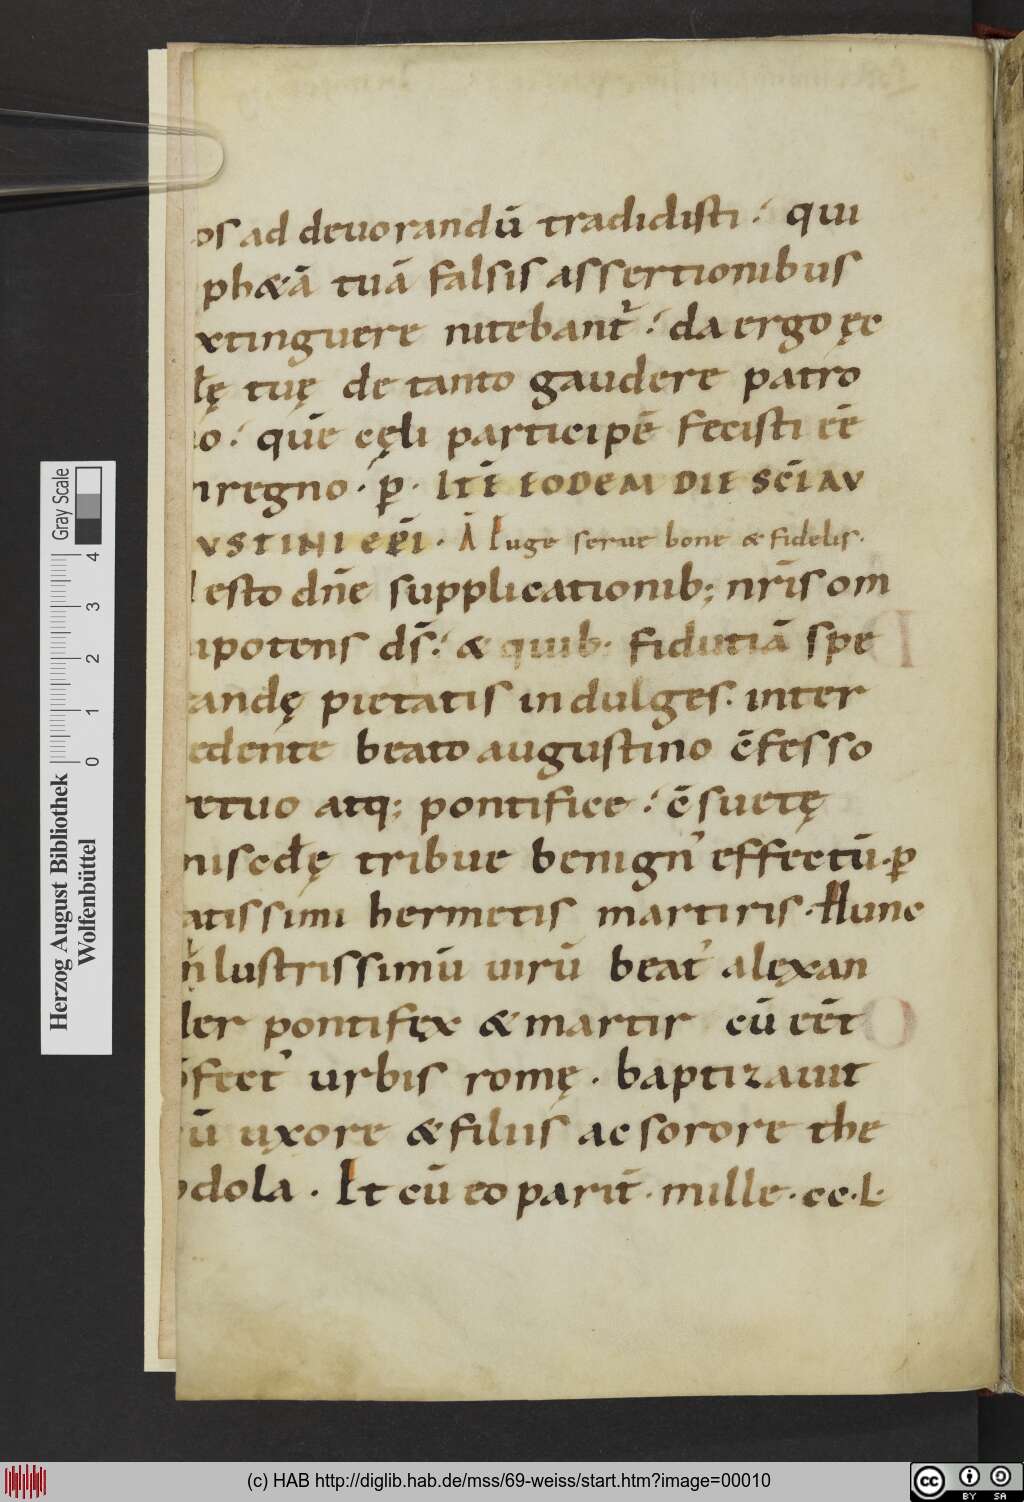 os ad deuorandū tradidisti. qui
phæā tuā falsis assertionibus
xtinguere nitebant᷑. da ergo ęc
lę tuę de tanto gaudere patro
o. quē cęli participē fecisti eē
nregno. p̄. ITĒ EODEM DIE SC̄I AV
VSTINI EP̄I. A Euge serue bone & fidelis.
desto dn̄e supplicationib; nr̄is om
ipotens ds̄. & quib. fidutiā spe
andę pietatis indulges. inter
edente beato augustino c̄fesso
retuo atq; pontifice. c̄suetę
misc̄dę tribue benign' effectū. p̄
atissimi hermetis martiris. Hunc
inlustrissimū uirū beat' alęxan
der pontifęx & martir cū eēt
fect' urbis romę. baptizauit
ū uxore & filiis ac sorore the
odola. Et cū eo parit̄. mille. cc. L.
Gray Scale
4
3
2
1
0
Herzog August Bibliothek
Wolfenbüttel
(c) HAB http://diglib.hab.de/mss/69-weiss/start.htm?image=00010
cc BY SA